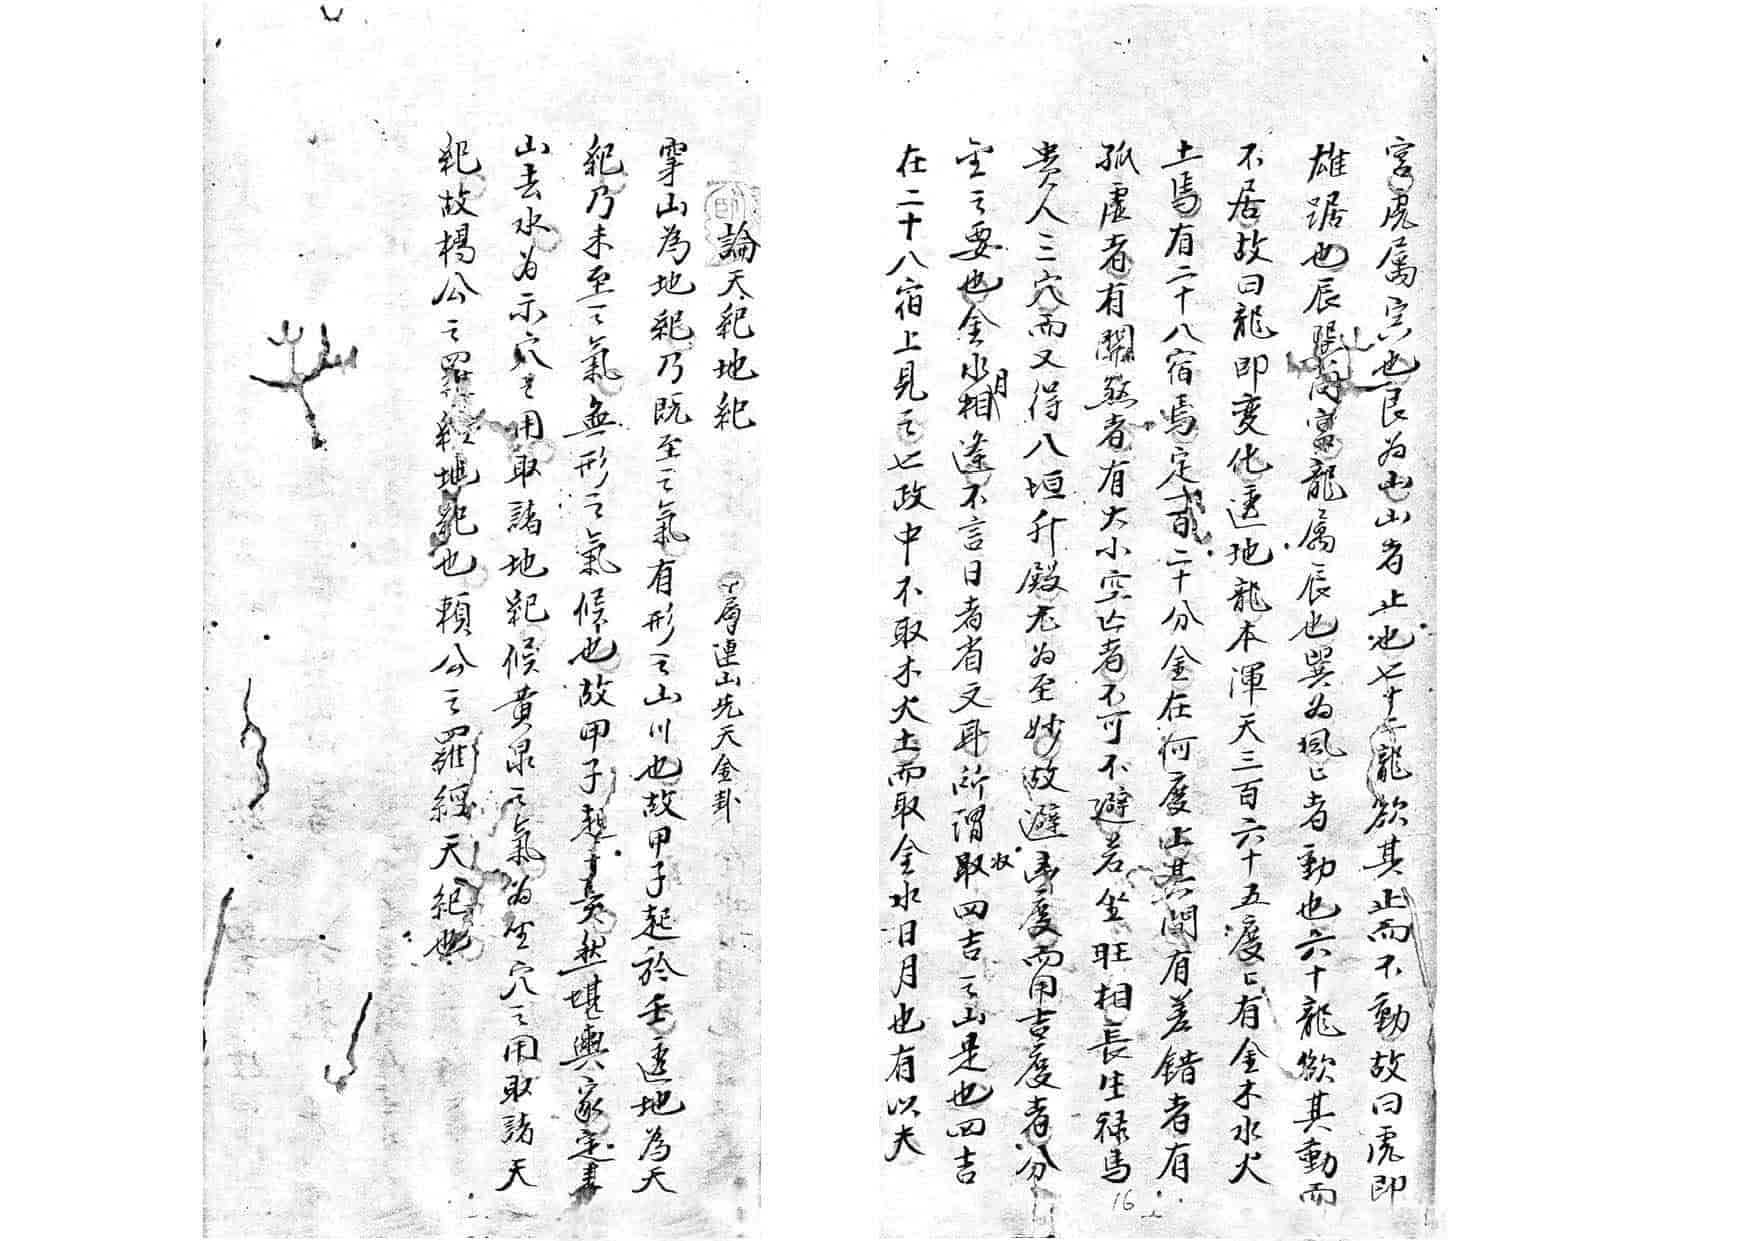 宮虎属寅也艮為山山者止也七十二龍欲其止而不動故曰虎即
雄踞也辰巽同宮龍属辰也巽為風〻者動也六十龍欲其動而
不居故曰龍即变化透地龍本渾天三百六十五度〻有金木水火
土馬有二十八宿馬定百二十分金在何度上其間有差錯者有
孤虛者有關煞者有大小空亡者不可不避若坐旺相長生禄馬
貴人三穴而又得八垣升殿尤為至妙故避凶度而用吉度者分
金之要也金水月相逢不言日者省文耳所謂取收四吉之山是也四吉
在二十八宿上見之七政中不取木火土而取金水日月也有以夫
16
論天紀地紀
属連山先天金卦
穿山為地紀乃既至之氣有形之山川也故甲子起於壬透地為天
紀乃未至之氣無形之氣候也故甲子起於亥然堪輿家定
山去水為示穴之用取諸地紀候黄泉之氣為坐穴之用取諸天
紀故楊公之羅経地紀也頼公之羅經天紀也